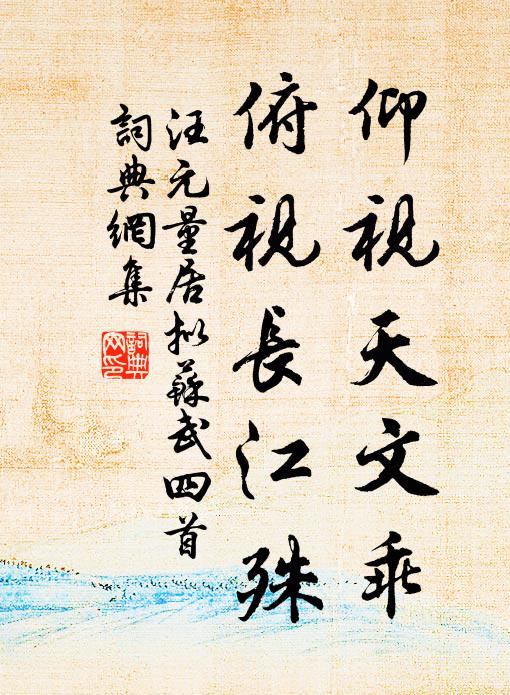 仰視天文乖
俯視長江殊
汪元量居擬蘇武四首
詞典網集
詞典網印